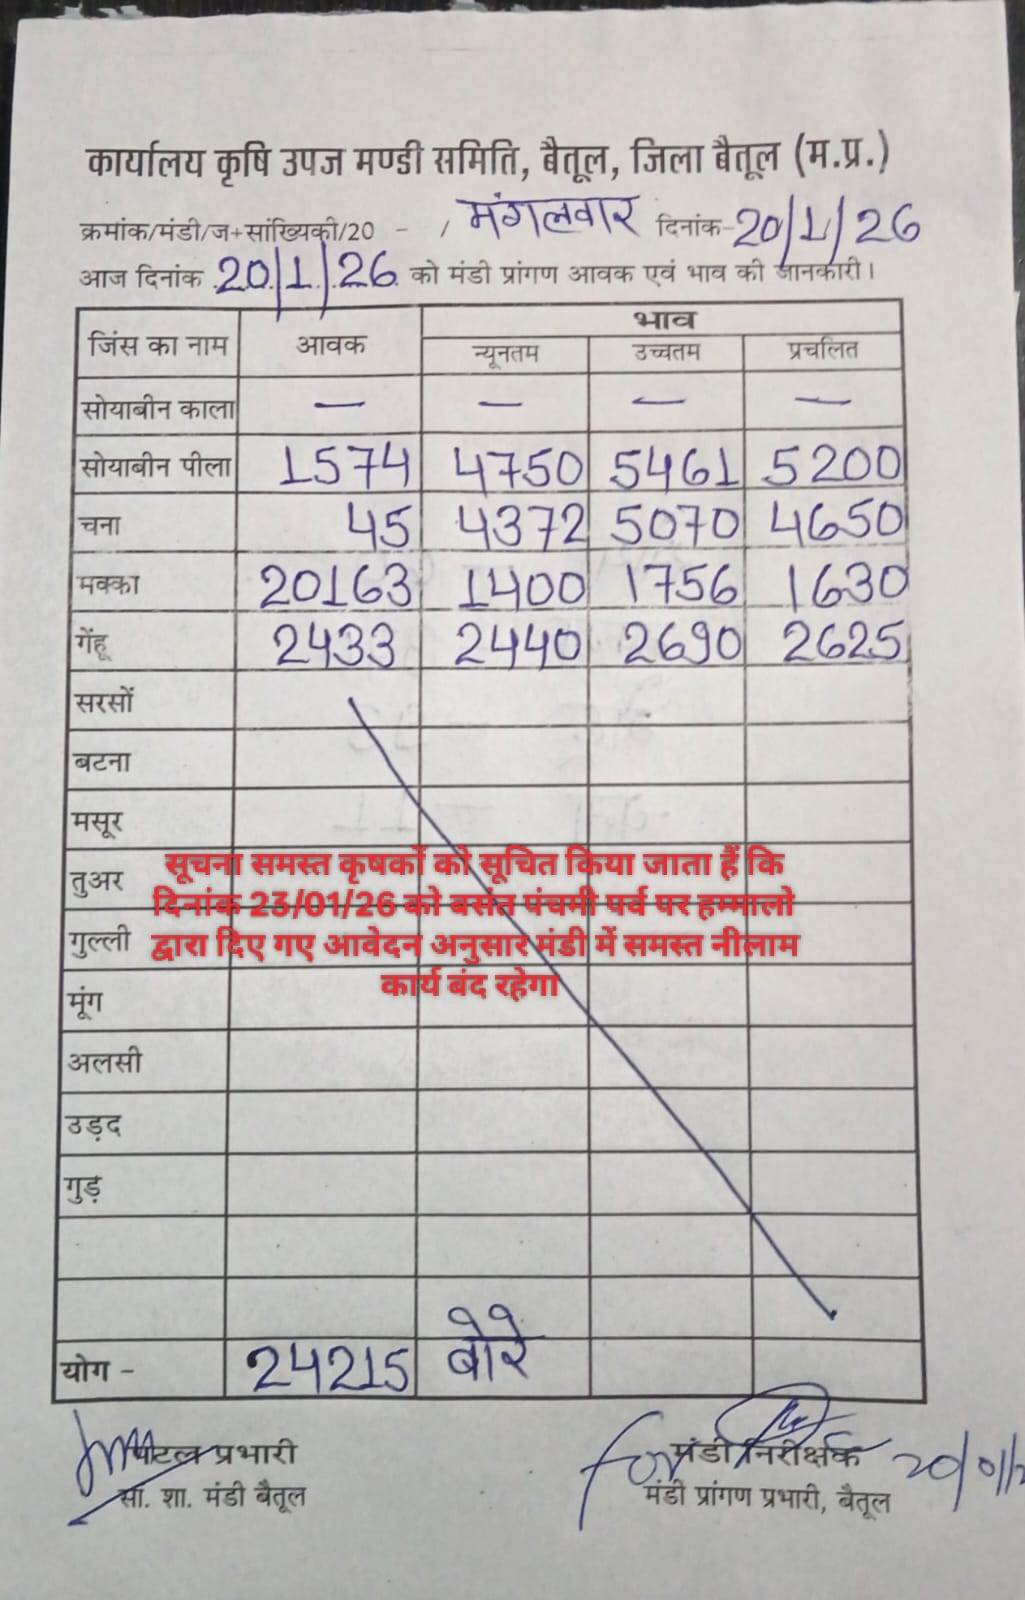 कार्यालय कृषि उपज मण्डी समिति, बैतूल, जिला बैतूल (म.प्र.)
क्रमांक/मंडी/ज+सांख्यिकी/20 - / मंगलवार दिनांक-20/1/26
आज दिनांक 20/1/26 को मंडी प्रांगण आवक एवं भाव की जानकारी।
जिंस का नाम आवक भाव
न्यूनतम उच्चतम प्रचलित
सोयाबीन काला — — — —
सोयाबीन पीला 1574 4750 5461 5200
चना 45 4372 5070 4650
मक्का 20163 1400 1756 1630
गेंहू 2433 2440 2690 2625
सरसों
बटना
मसूर
तुअर
गुल्ली
मूंग
अलसी
उड़द
गुड़
सूचना समस्त कृषकों को सूचित किया जाता हैं कि
दिनांक 23/01/26 को बसंत पंचमी पर्व पर हम्मालो
द्वारा दिए गए आवेदन अनुसार मंडी में समस्त नीलाम
कार्य बंद रहेगा
योग - 24215 बोरे
पोटल प्रभारी
सा. शा. मंडी बैतूल
for मंडी निरीक्षक 20/01/2
मंडी प्रांगण प्रभारी, बैतूल